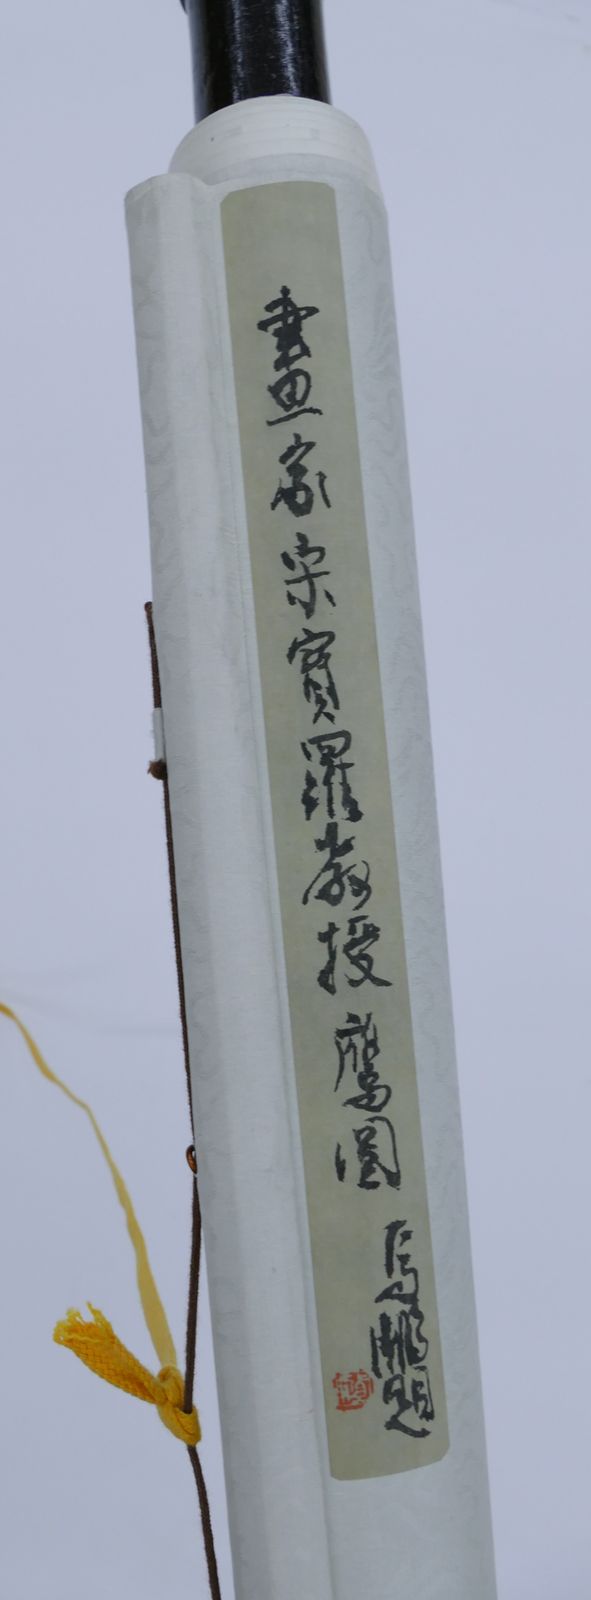 畫家宋寶羅教授鷹圖
馬鵬題